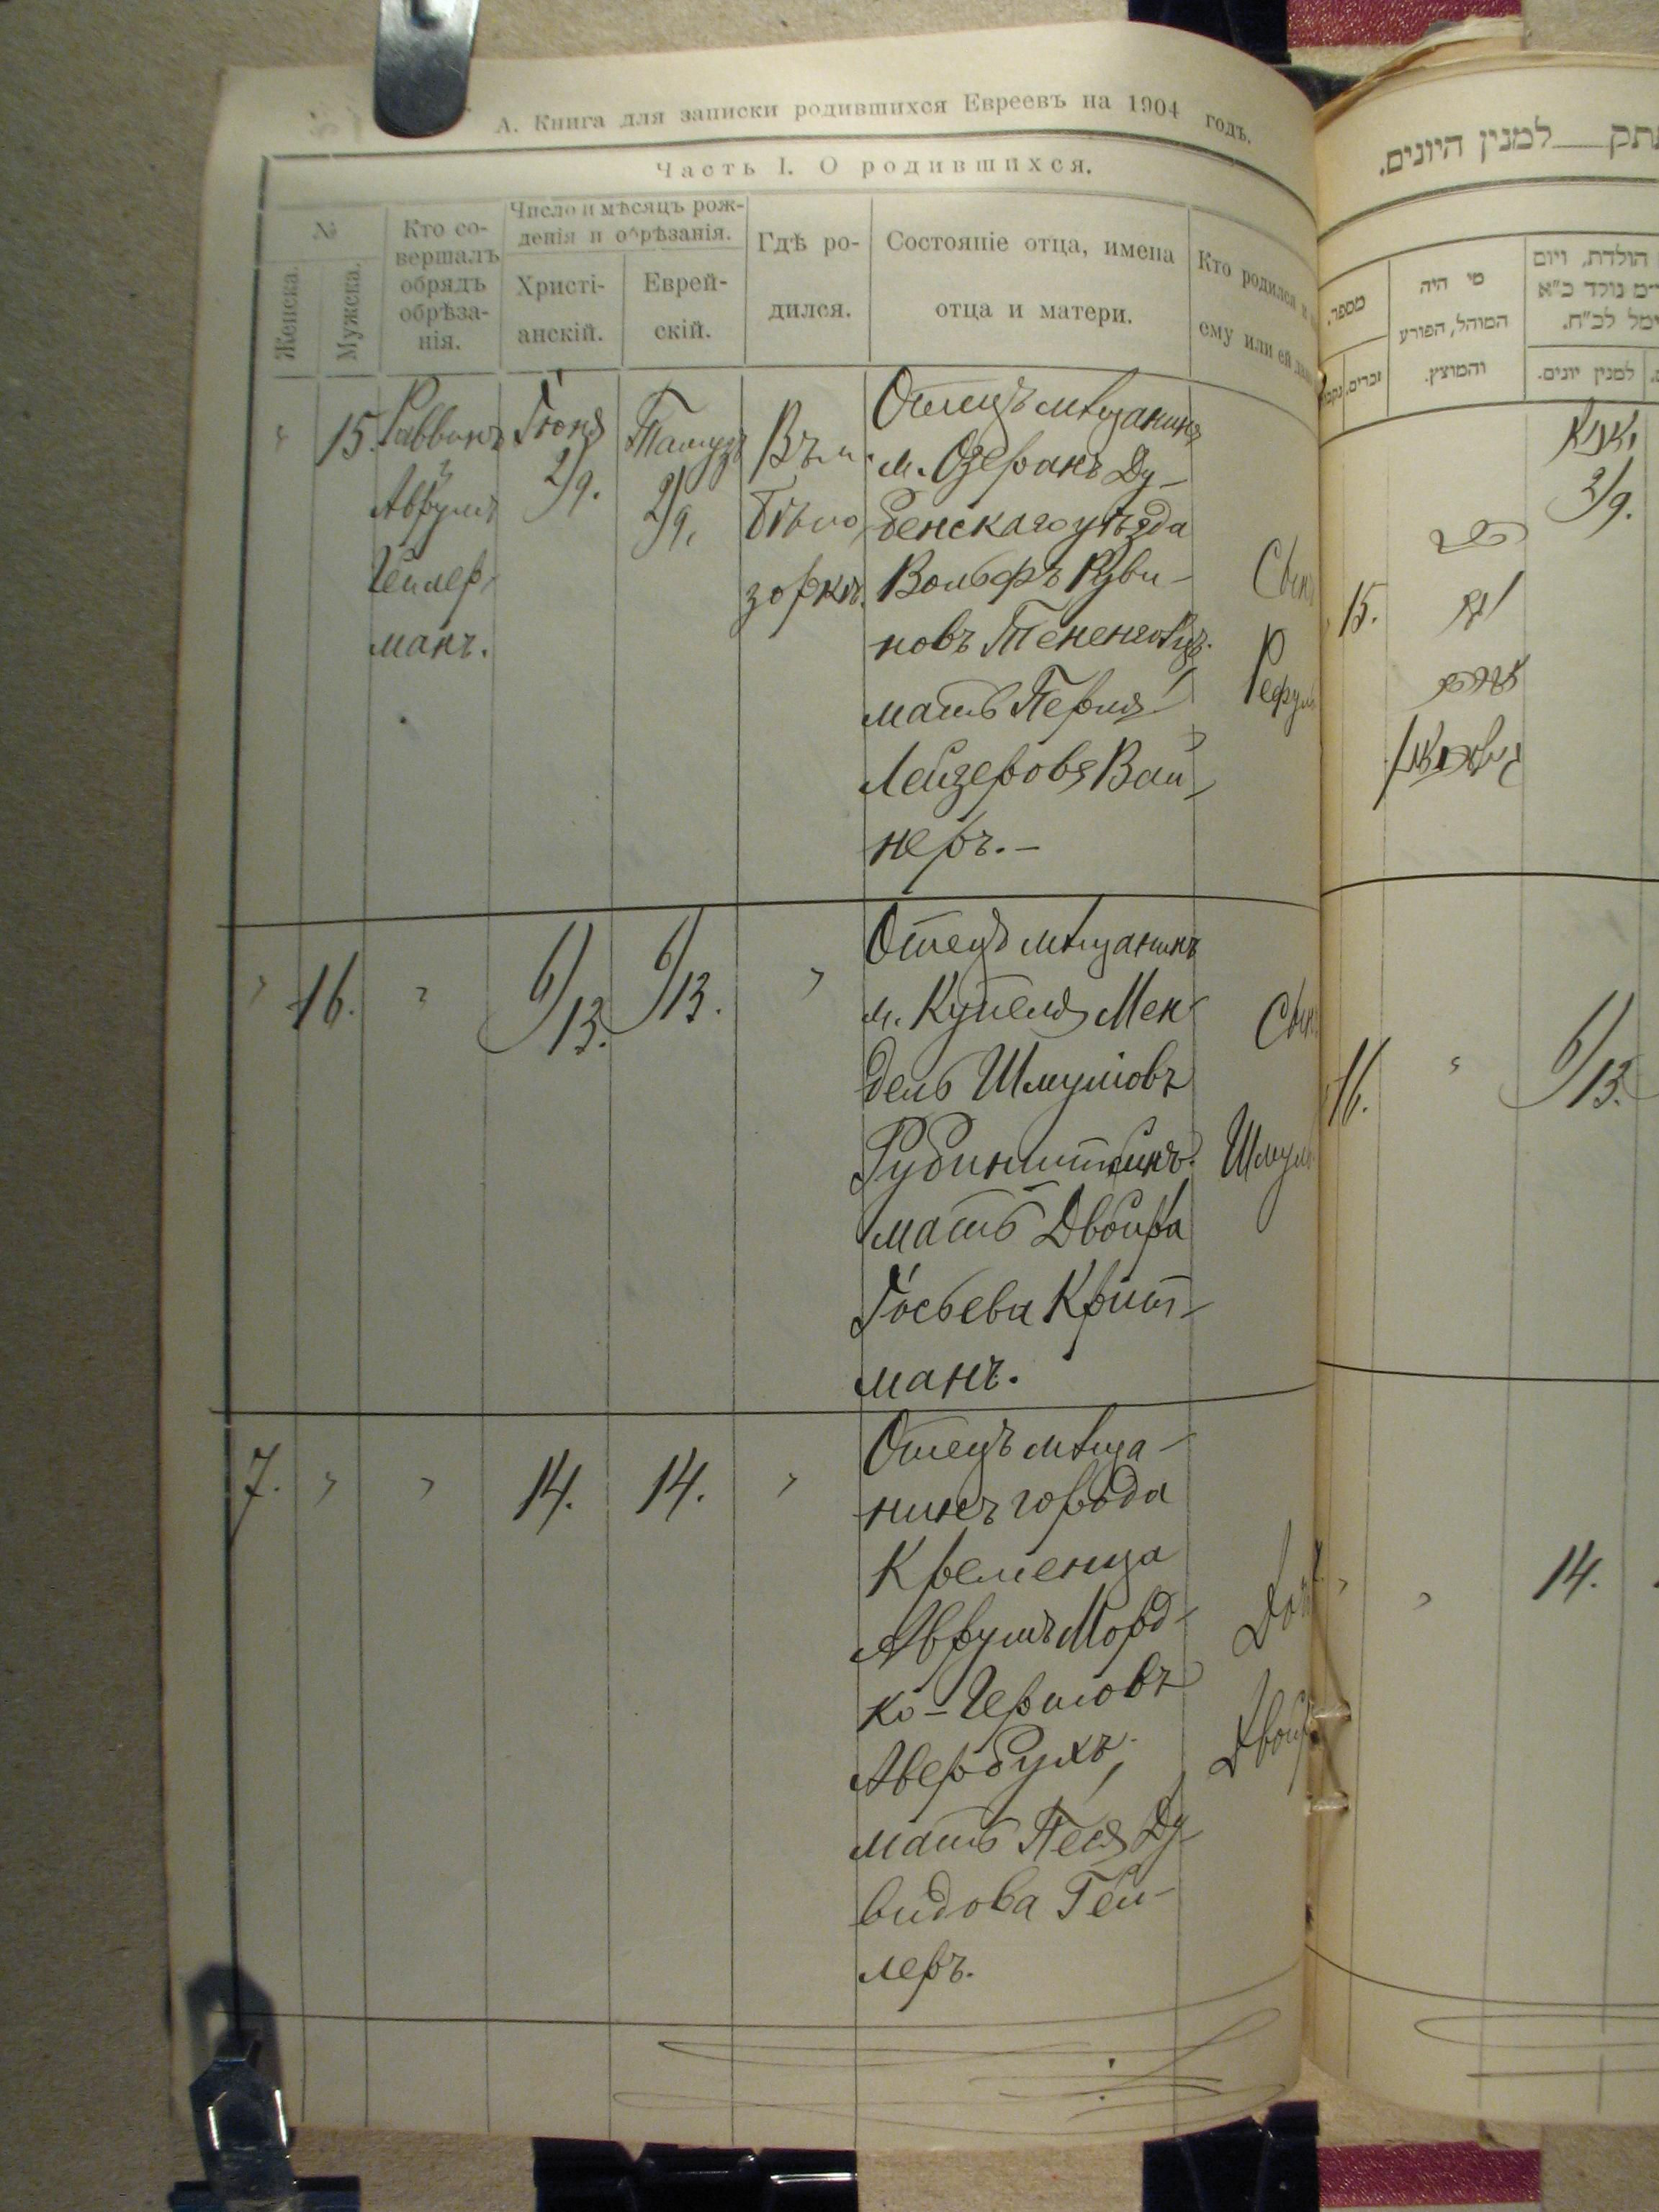 А. Книга для записки родившихся Евреевъ на 1904 годъ.
Часть I. О родившихся.
№
Женска.
Мужска.
Кто со-
вершалъ
обрядъ
обрѣза-
нія.
Число и мѣсяцъ рож-
денія и обрѣзанія.
Христі-
анскій.
Еврей-
скій.
Гдѣ ро-
дился.
Состояніе отца, имена
отца и матери.
Кто родился и
ему или ей дано
15.
Раввинъ
Аврумъ
Гейлер
манъ.
Іюня
2/9.
Тамуза
2/9.
Въ м.
Бѣло
зоркѣ.
Отецъ мѣщанинъ
м. Озеранъ Ду-
бенскаго уѣзда
Вольфъ Руви-
новъ
мать Перля
Лейзерова Вай
неръ.-
Сынъ
16.
6/13.
6/13.
Отецъ мѣщанинъ
м. Купеля Мен
дель Шмулiовъ
Рубинштейнъ.
мать Двойра
Іосьева Крит-
манъ.
Сынъ
Шмуль
7.
14.
14.
Отецъ мѣща-
нинъ города
Кременца
Аврумъ Морд-
ко-Гершовъ
Авербухъ,
мать Песя Ду
видова Гей-
леръ.
Дочь
Двойра
למנין היונים.
מספר.
זכרים.
מי היה
המוהל, הפורע
והמוצץ.
הולדת, ויום
למנין יונים.
15.
2/9.
16.
6/13.
14.